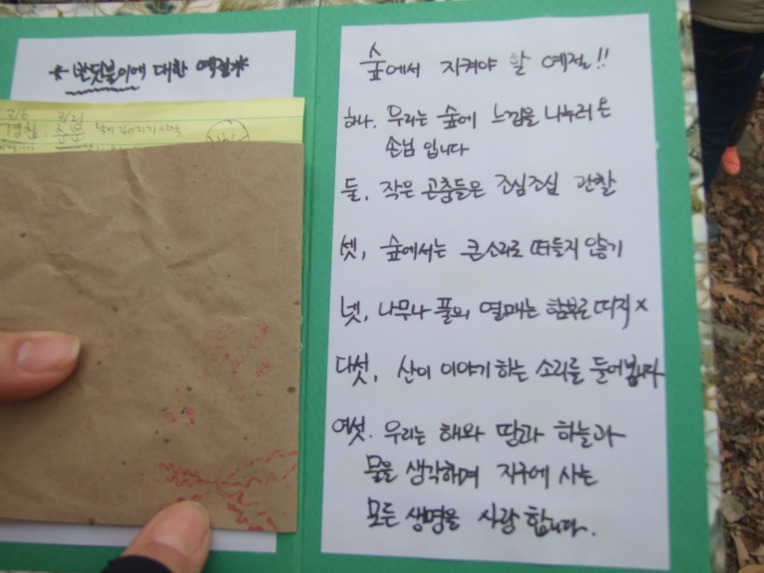 *반딧불이에 대한 예절*
3/6 3/21
경칩. 춘분
숲에서 지켜야 할 예절!!
하나. 우리는 숲에 느낌을 나누러 온
손님 입니다
둘, 작은 곤충들은 조심조심 관찰
셋, 숲에서는 큰소리로 떠들지 않기
넷, 나무나 풀의 열매는 함부로 따지 x
다섯, 산이 이야기 하는 소리를 들어봅니다
여섯. 우리는 해와 땅과 하늘과
물을 생각하며 지구에 사는
모든 생명을 사랑 합니다.